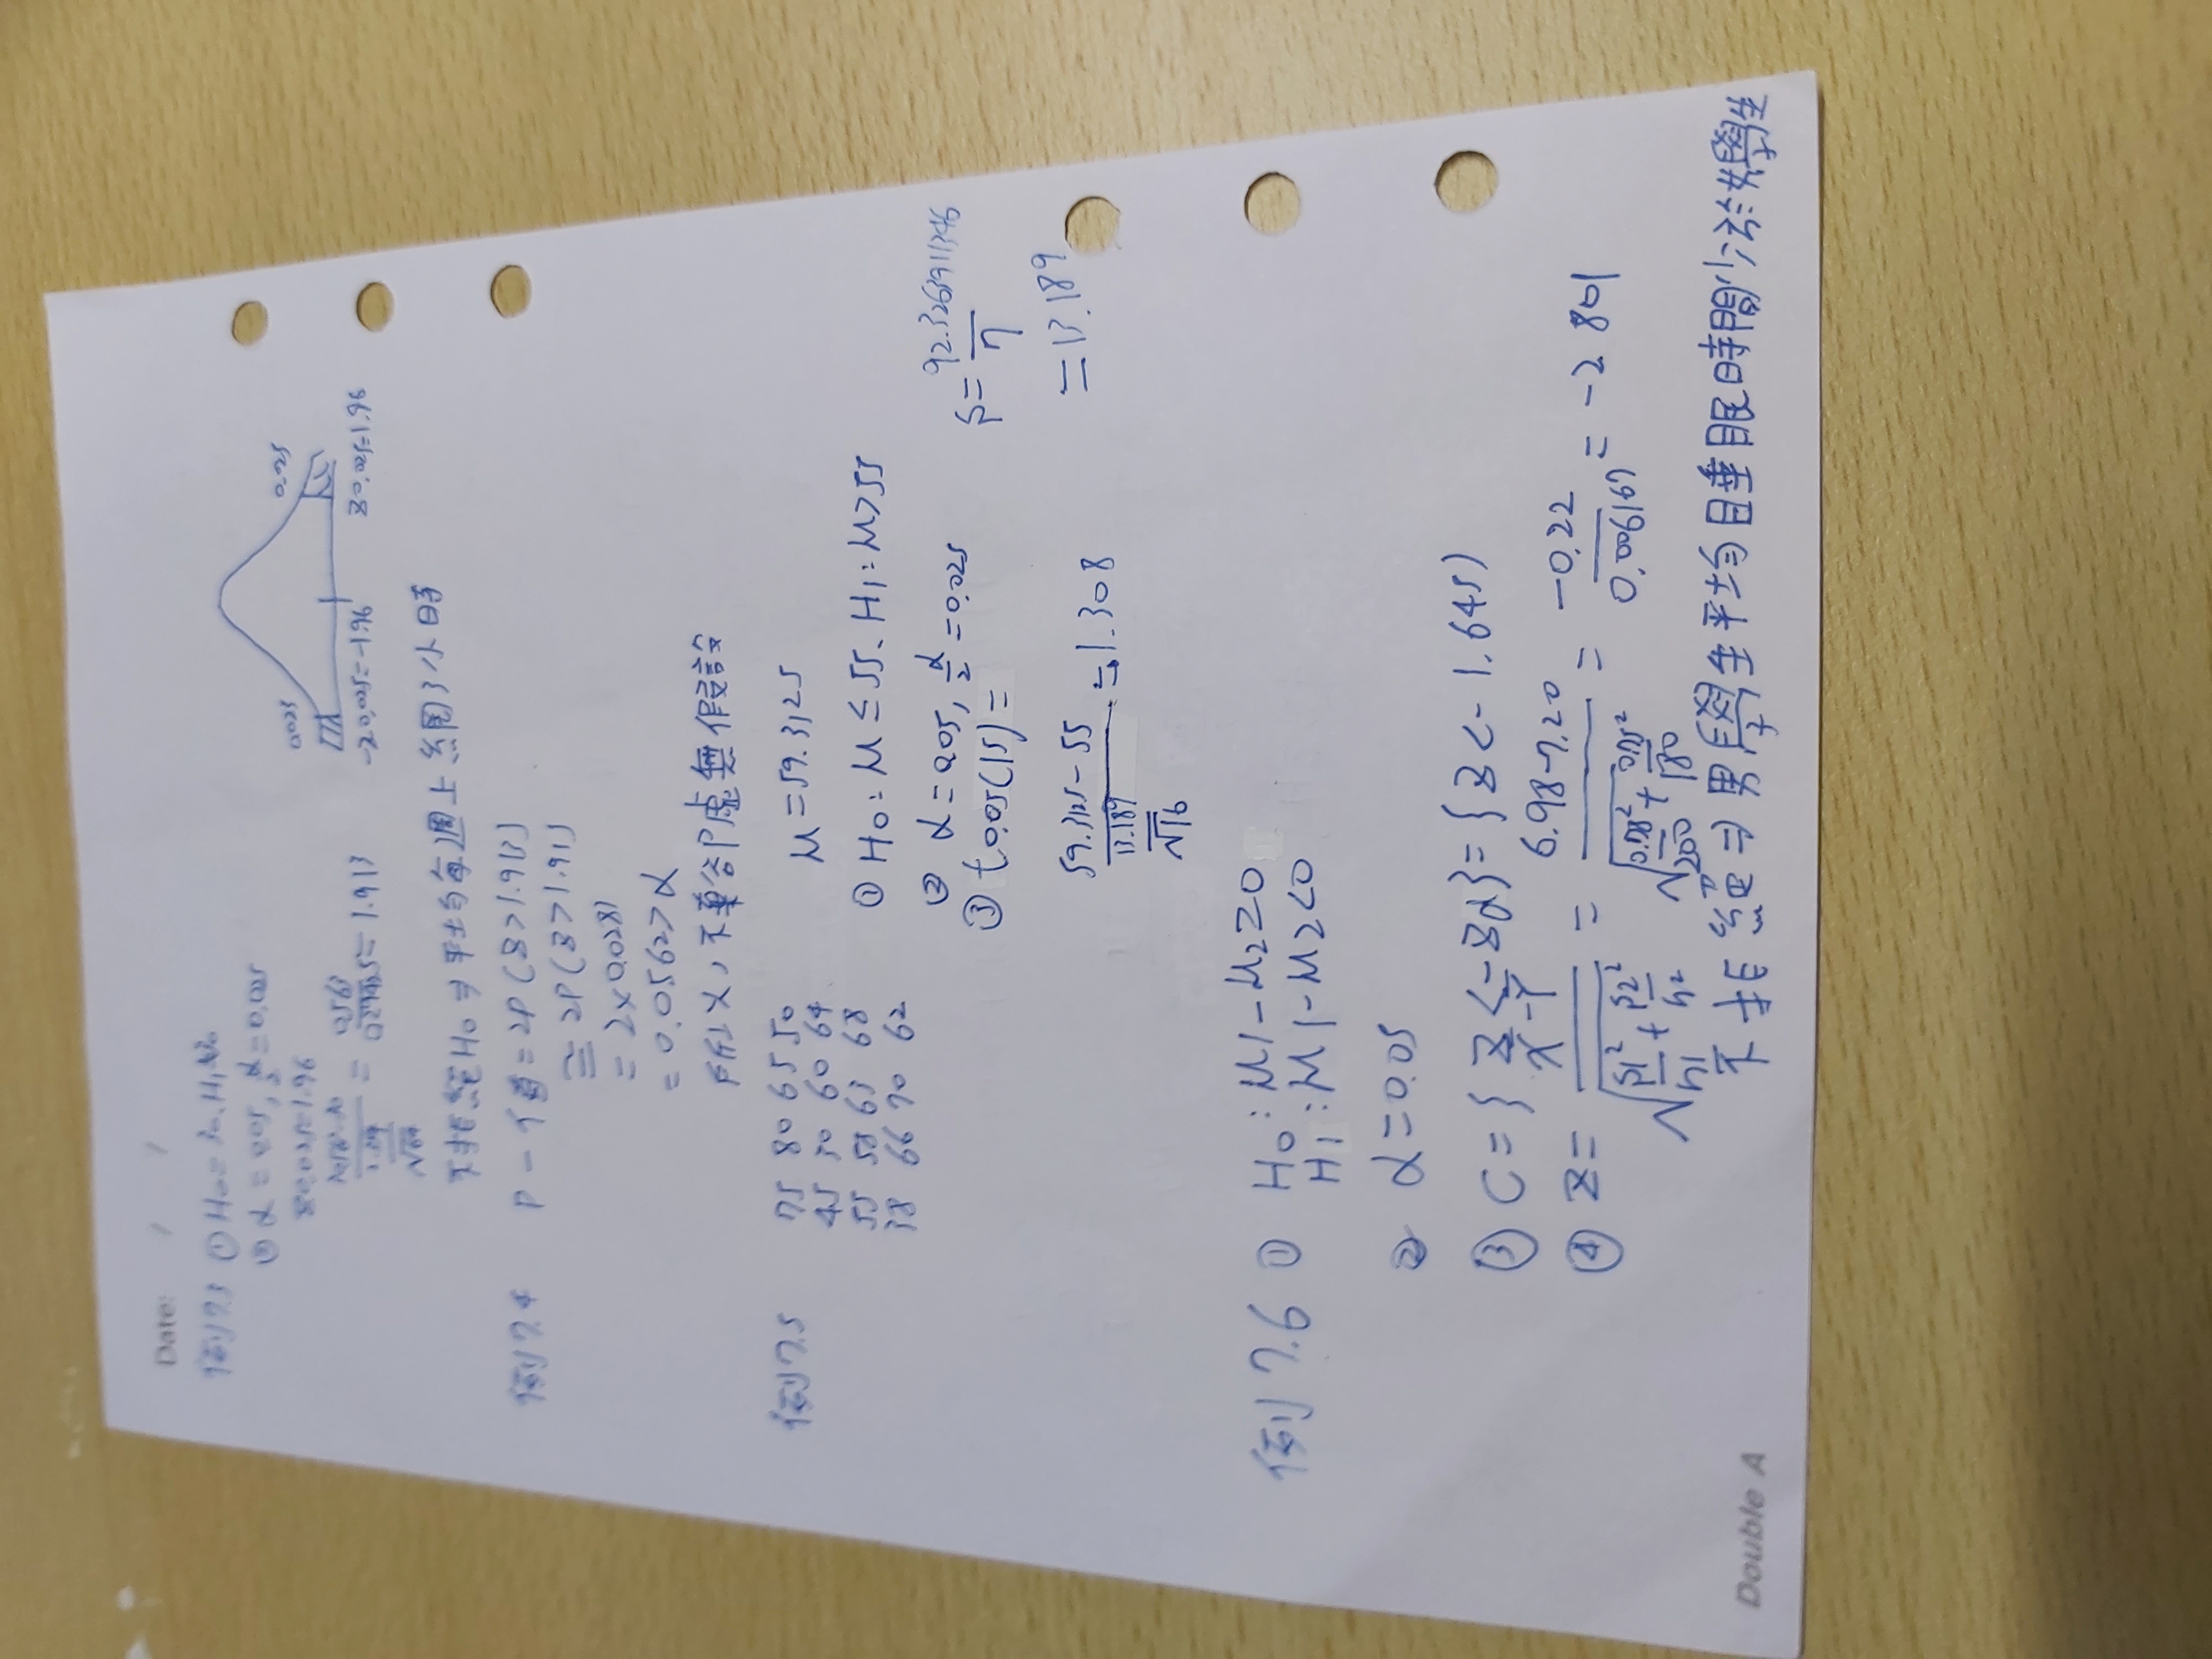 Date: / /
例7.3 ① H0=30、H1≠30
② α=0.05, α/2=0.025
z0.025=1.96
0.025 0.025
-z0.025=-1.96 z0.025=1.96
= 0.563 = 1.913
√64
不拒絕H0⇒平均每週上網3小時
例7.4 P-值=2P(z>1.913)
≅2P(z>1.91)
=2×0.0281
=0.0562>α
所以,不棄卻虛無假設
例7.5 75 80 65 50
45 30 60 64
55 58 63 68
38 66 70 62
μ=59.3125
① H0:μ≤55、H1:μ>55
② α=0.05, α/2=0.025
③ t0.05(15)=
S=92.3263911346/7
=13.189
59.3125-55/13.189/√16=1.308
例7.6 ① H0:μ1-μ2≥0
H1:μ1-μ2<0
② α=0.05
③ C={z<-zα}={z<-1.645)
④ z=X-Y/√S1²/n1+S2²/n2=6.98-7.20/√0.78²/200+0.75²/180=-0.22/0.006167=-2.801
不拒絕⇒男學生平均睡眠時間少於女學生
Double A